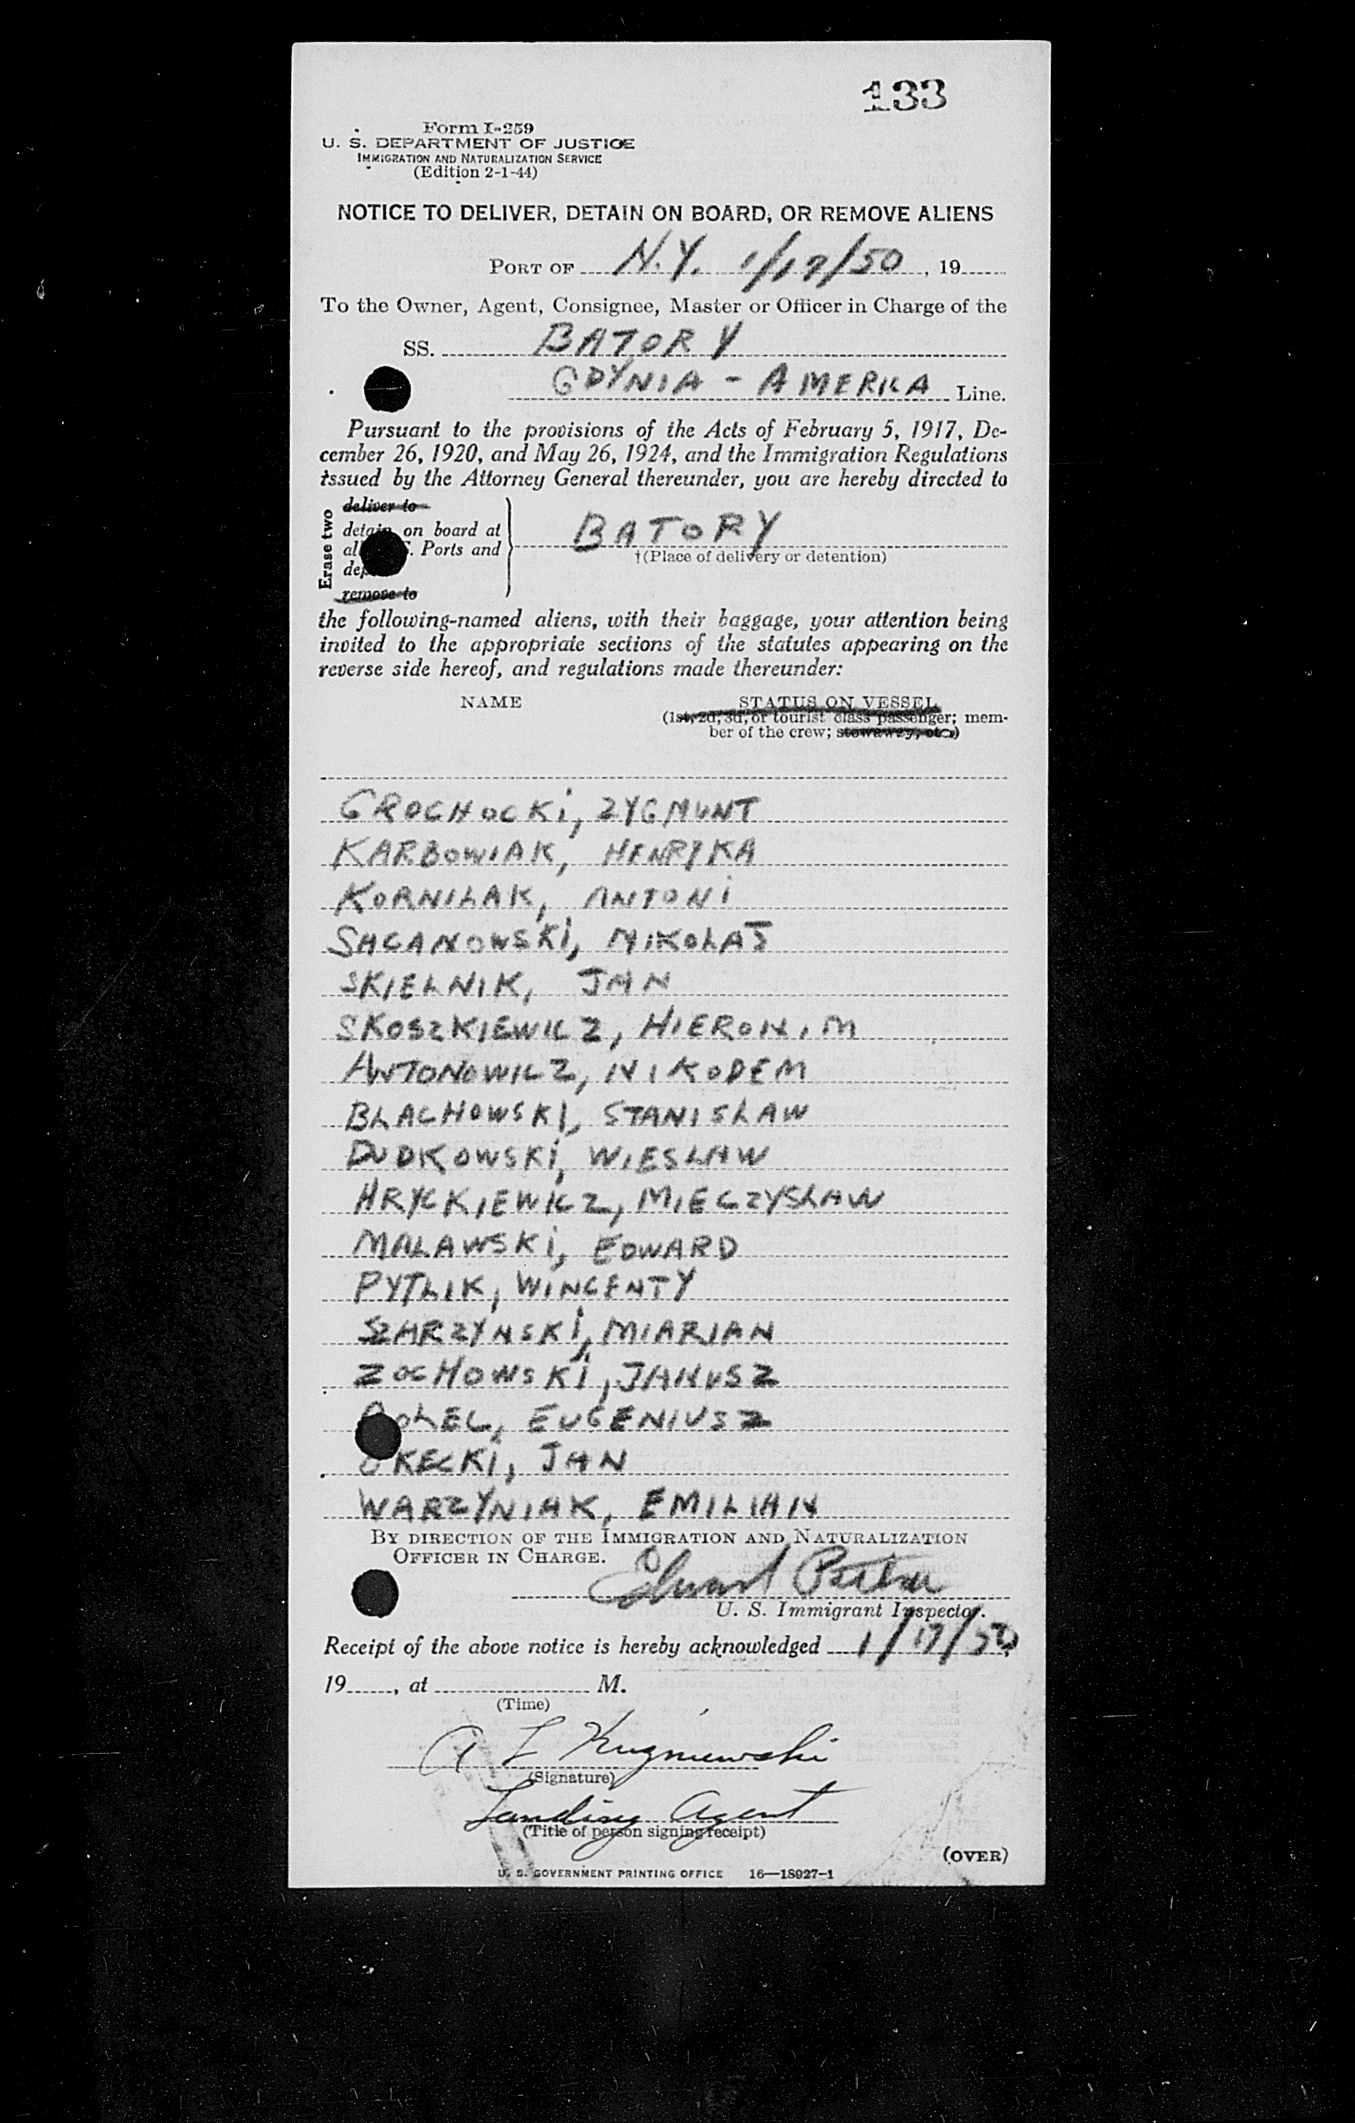 133
Form I-259
U. S. DEPARTMENT OF JUSTICE
IMMIGRATION AND NATURALIZATION SERVICE
(Edition 2-1-44)
NOTICE TO DELIVER, DETAIN ON BOARD, OR REMOVE ALIENS
PORT OF N.Y. 1/17/50, 19
To the Owner, Agent, Consignee, Master or Officer in Charge of the
SS. BATORY
GDYNIA - AMERICA Line.
Pursuant to the provisions of the Acts of February 5, 1917, De-
cember 26, 1920, and May 26, 1924, and the Immigration Regulations
issued by the Attorney General thereunder, you are hereby directed to
Erase two
deliver to
detain on board at
Ports and BATORY
†(Place of delivery or detention)
remove to
the following-named aliens, with their baggage, your attention being
invited to the appropriate sections of the statutes appearing on the
reverse side hereof, and regulations made thereunder:
NAME STATUS ON VESSEL
(1st, 2d, 3d, or tourist class passenger; mem-
ber of the crew; stowaway, etc.)
GROCHOCKI, ZYGMUNT
KARBOWIAK, HENRYKA
KORNILAK, ANTONI
SACANOWSKI, MIKOLAJ
SKIELNIK, JAN
SKOSZKIEWICZ, HIERONIM
ANTONOWICZ, NIKODEM
BLACHOWSKI, STANISLAW
DUDKOWSKI, WIESLAW
HRYCKIEWICZ, MIECZYSLAW
MALAWSKI, EDWARD
PYTLIK, WINCENTY
SZARZYNSKI, MIARIAN
ZOCHOWSKI, JANUSZ
EUGENIUSZ
JAN
WARZYNIAK, EMILIAN
BY DIRECTION OF THE IMMIGRATION AND NATURALIZATION
OFFICER IN CHARGE.
Edward
U. S. Immigrant Inspector.
Receipt of the above notice is hereby acknowledged 1/17/50,
19, at M.
(Time)
A L Kuzniewski
(Signature)
Landing Agent
(Title of person signing receipt)
(OVER)
U. S. GOVERNMENT PRINTING OFFICE 16—18927-1